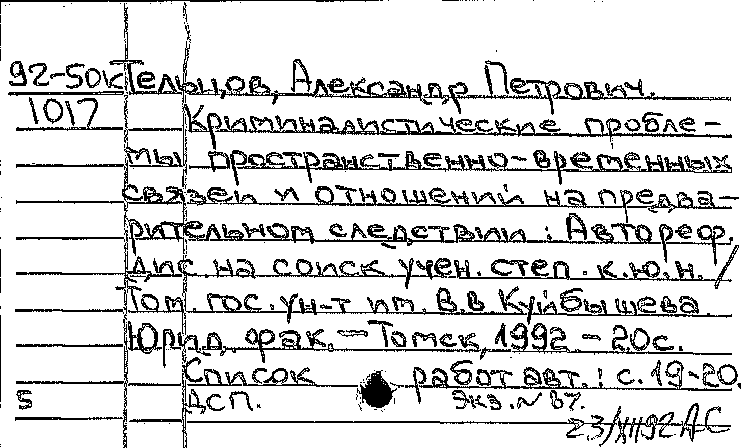 92-50к Тельцов, Александр Петрович.
1017 Криминалистические пробле-
мы пространственно-временных
связей и отношений на предва-
рительном следствии : Автореф.
дис на соиск учен. степ. к.ю.н. /
Том. гос. ун-т им. В.В. Куйбышева.
Юрид. фак. — Томск, 1992 - 20с.
Список работ авт. : с. 19-20.
5 ДСП. экз. N 87.
23/XII92 АС